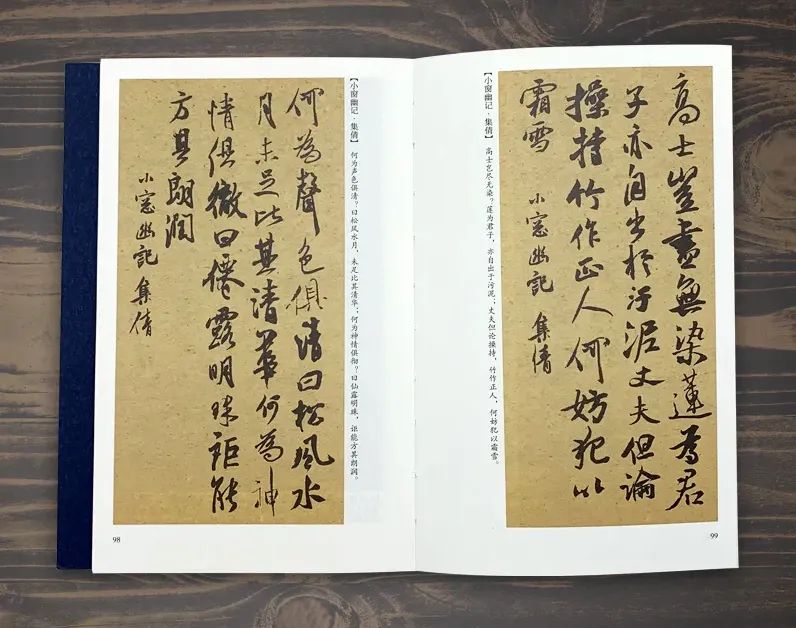 【小窗幽记·集倩】 何为声色俱清？曰松风水月，未足比其清华；何为神情俱彻？曰仙露明珠，讵能方其朗润。
何為聲色俱清曰松風水
月未足比其清華何為神
情俱徹曰僊露明珠詎能
方其朗潤
小窓幽記集倩
98
高士豈盡無染蓮為君
子亦自出於汙泥丈夫但論
操持竹作正人何妨犯以
霜雪
小窓幽記 集倩
【小窗幽记·集倩】 高士岂尽无染？莲为君子，亦自出于污泥；丈夫但论操持，竹作正人，何妨犯以霜雪。
99